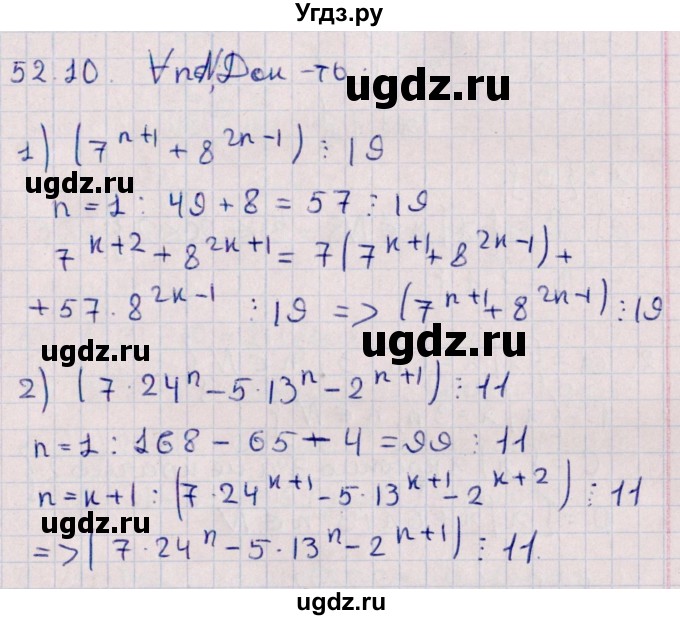 Угдз.ру
52.10. ∀n∈N, Док-ть:
ugdz.ru
1) (7^{n+1} + 8^{2n-1}) ⋮ 19
ugdz.ru
n = 1 : 49 + 8 = 57 ⋮ 19
7^{k+2} + 8^{2k+1} = 7(7^{k+1} + 8^{2k-1}) +
+ 57 · 8^{2k-1} ⋮ 19 => (7^{n+1} + 8^{2n-1}) ⋮ 19
ugdz.ru ugdz.ru
2) (7 · 24^n - 5 · 13^n - 2^{n+1}) ⋮ 11
n = 1 : 168 - 65 - 4 = 99 ⋮ 11
n = k+1 : (7 · 24^{k+1} - 5 · 13^{k+1} - 2^{k+2}) ⋮ 11
ugdz.ru ugdz.ru
=> (7 · 24^n - 5 · 13^n - 2^{n+1}) ⋮ 11.
ugdz.ru